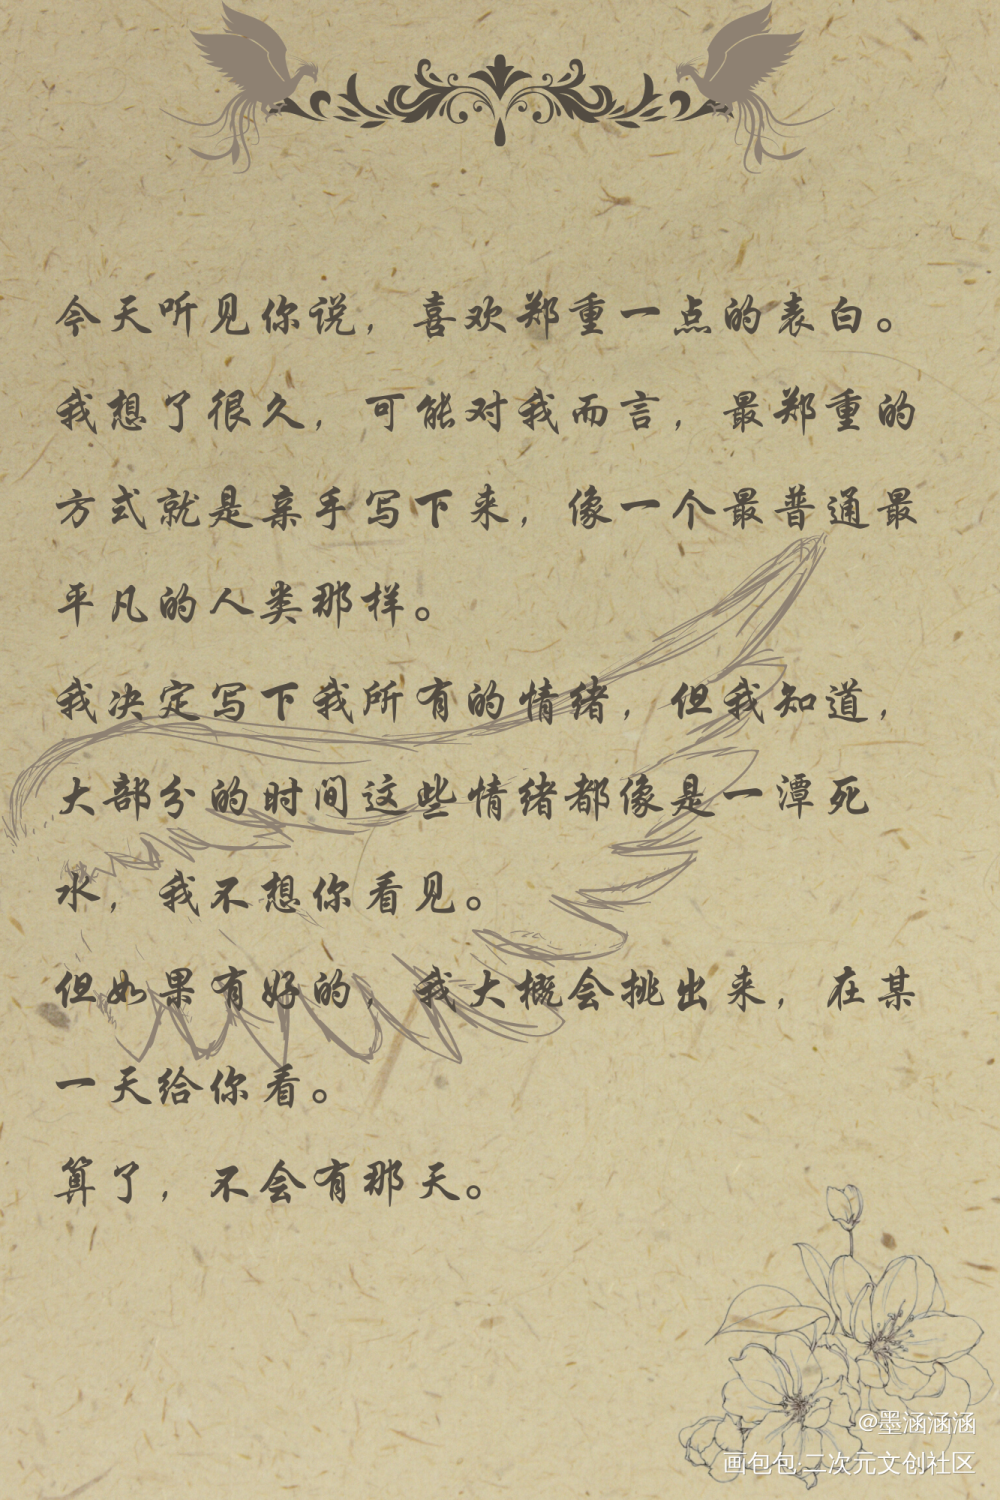 今天听见你说，喜欢郑重一点的表白。
我想了很久，可能对我而言，最郑重的
方式就是亲手写下来，像一个最普通最
平凡的人类那样。
我决定写下我所有的情绪，但我知道，
大部分的时间这些情绪都像是一潭死
水，我不想你看见。
但如果有好的，我大概会挑出来，在某
一天给你看。
算了，不会有那天。
@墨涵涵涵
画包包·二次元文创社区